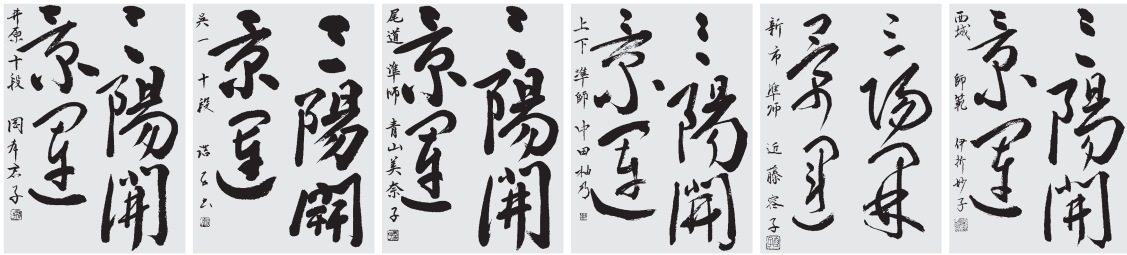 三陽開
景運
井原 十段 岡本京子
三陽開
景運
呉一 十段
三陽開
景運
尾道 準師 青山美奈子
三陽開
景運
上下 準師 中田柚乃
三陽開
景運
新市 準師 近藤容子
三陽開
景運
西城 師範 伊折妙子